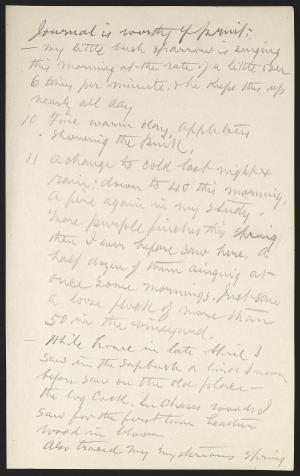 Journal is worthy of print.
— my little bush sparrow is singing
this morning at the rate of a little over
6 times per minute, & he keeps this up
nearly all day
10 Fine warm day, Apple trees
showing the pink.
11 A change to cold last night &
rain; down to 40 this morning.
A fire again in my study.
more purple finches this spring
than I ever before saw here. A
half dozen of them singing at
once some mornings. Just saw
a loose flock of more than
50 in the vineyard.
— While home in late April I
saw in the sapbush a bird I never
before saw on the old place —
the log Cock. In Chases woods I
saw for the first time Leather
wood in bloom
Also traced my mysterious spring